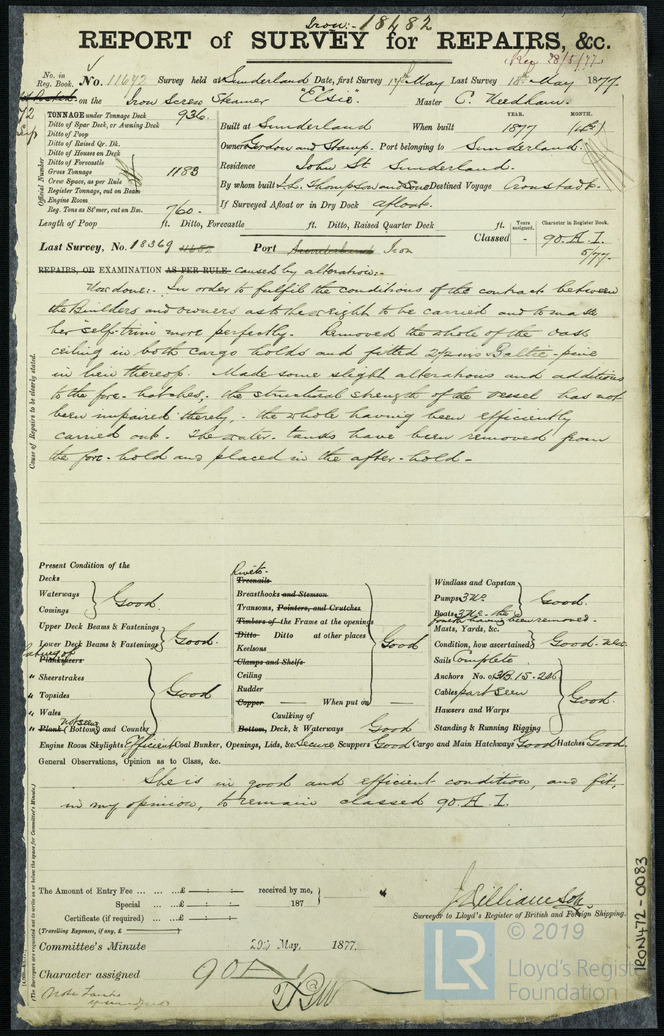 Iron:- 18482
REPORT of SURVEY for REPAIRS, &c.
28/5/77
No. in Reg. Book. No. 11692 Survey held at Sunderland Date, first Survey 17th May Last Survey 18th May 1877
on the Iron Screw Steamer "Elsie" Master C. Needham.
TONNAGE under Tonnage Deck 936.
Ditto of Spar Deck, or Awning Deck
Ditto of Poop
Ditto of Raised Qr. Dk.
Ditto of Houses on Deck
Ditto of Forecastle
Gross Tonnage 1183
Crew Space, as per Rule
Register Tonnage, out on Beam
Engine Room
Reg. Tons as St'mer, cut on Bm. 760.
Official Number
YEAR. MONTH.
Built at Sunderland When built 1877 (4th)
Owners Gordon and Stamp. Port belonging to Sunderland.
Residence John St Sunderland.
By whom built J.L. Thompson and Sons Destined Voyage Cronstadt.
If Surveyed Afloat or in Dry Dock afloat.
Length of Poop ft. Ditto, Forecastle ft. Ditto, Raised Quarter Deck ft.
Years assigned. Character in Register Book.
Last Survey, No. 18369 Port Sunderland Iron Classed - 90.A.1. 5/77.
REPAIRS, OR EXAMINATION AS PER RULE caused by alterations:-
Now done:- In order to fulfil the conditions of the contract between
the Builders and owners as to the weight to be carried and to make
her self-trim more perfectly. Removed the whole of the
ceiling in both cargo holds and fitted 2½ ins Baltic-pine
in lieu thereof. Made some slight alterations and additions
to the fore-hatches; the structural strength of the vessel has not
been impaired thereby,- the whole having been efficiently
carried out. The water-tanks have been removed from
the fore-hold and placed in the after-hold-
Cause of Repairs to be clearly stated.
Present Condition of the
Decks
Waterways
Comings
Good.
Upper Deck Beams & Fastenings
Lower Deck Beams & Fastenings
Good.
Planksheers
" Sheerstrakes
" Topsides
" Wales
" Plank (Bottom) and Counter
not seen
Good
Rivets.
Treenails
Breasthooks and Stemson
Transoms, Pointers, and Crutches
Timbers of the Frame at the openings
Ditto Ditto at other places
Keelsons
Clamps and Shelfs
Ceiling
Rudder
Copper When put on
Good
Caulking of
Bottom, Deck, & Waterways Good
Windlass and Capstan
Pumps 3 No.
Boats 3 No. the
fourth having been removed.
Good.
Masts, Yards, &c.
Condition, how ascertained
Good.
Sails Complete.
Anchors No. of 3B.1S.2K
Cables part seen
Hawsers and Warps
Standing & Running Rigging
Good.
Engine Room Skylights Efficient Coal Bunker, Openings, Lids, &c. Secure Scuppers Good Cargo and Main Hatchways Good Hatches Good.
General Observations, Opinion as to Class, &c.
She is in good and efficient condition, and fit,
in my opinion, to remain classed 90.A.1.
The Amount of Entry Fee ... ... ...£ : : received by me,
Special ... ...£ : : 187
Certificate (if required) ...£ : :
(Travelling Expenses, if any, £ )
J. Williamson
Surveyor to Lloyd's Register of British and Foreign Shipping.
Committee's Minute 29th May, 1877.
Character assigned 90A1
(The Surveyors are requested not to write on or below the space for Committee's Minute.)
IRON472-0083
© 2019
LR
Lloyd's Register
Foundation